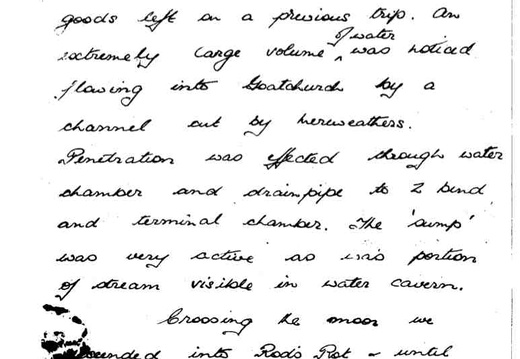 goods left on a previous trip. An
extremely large volume of water was noticed
flowing into Goatchurch by a
channel cut by Merewethers.
Penetration was effected through water
chamber and drainpipe to Z bend
and terminal chamber. The 'sump'
was very active as was portion
of stream visible in water cavern.
Crossing the moor we
into Rod's Pot & until